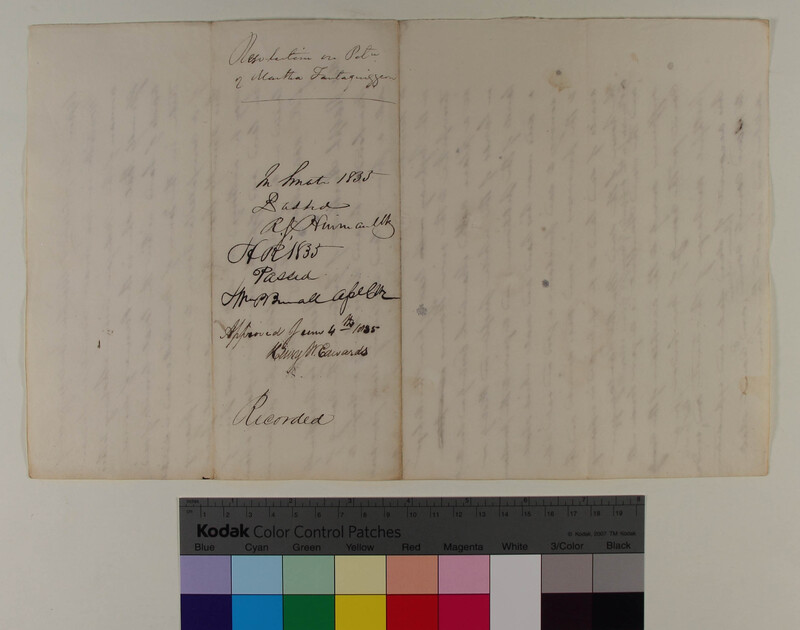 Resolution on Petn
of Martha Tantaquidgeon
In Senate 1835
Passed
R. R. Hinman Clk
H R 1835
Passed
Asst Clk
Approved June 4th 1835
Henry W. Edwards
Recorded
inches 1 2 3 4 5 6 7 8
cm 1 2 3 4 5 6 7 8 9 10 11 12 13 14 15 16 17 18 19
Kodak Color Control Patches
© Kodak, 2007 TM: Kodak
Blue Cyan Green Yellow Red Magenta White 3/Color Black